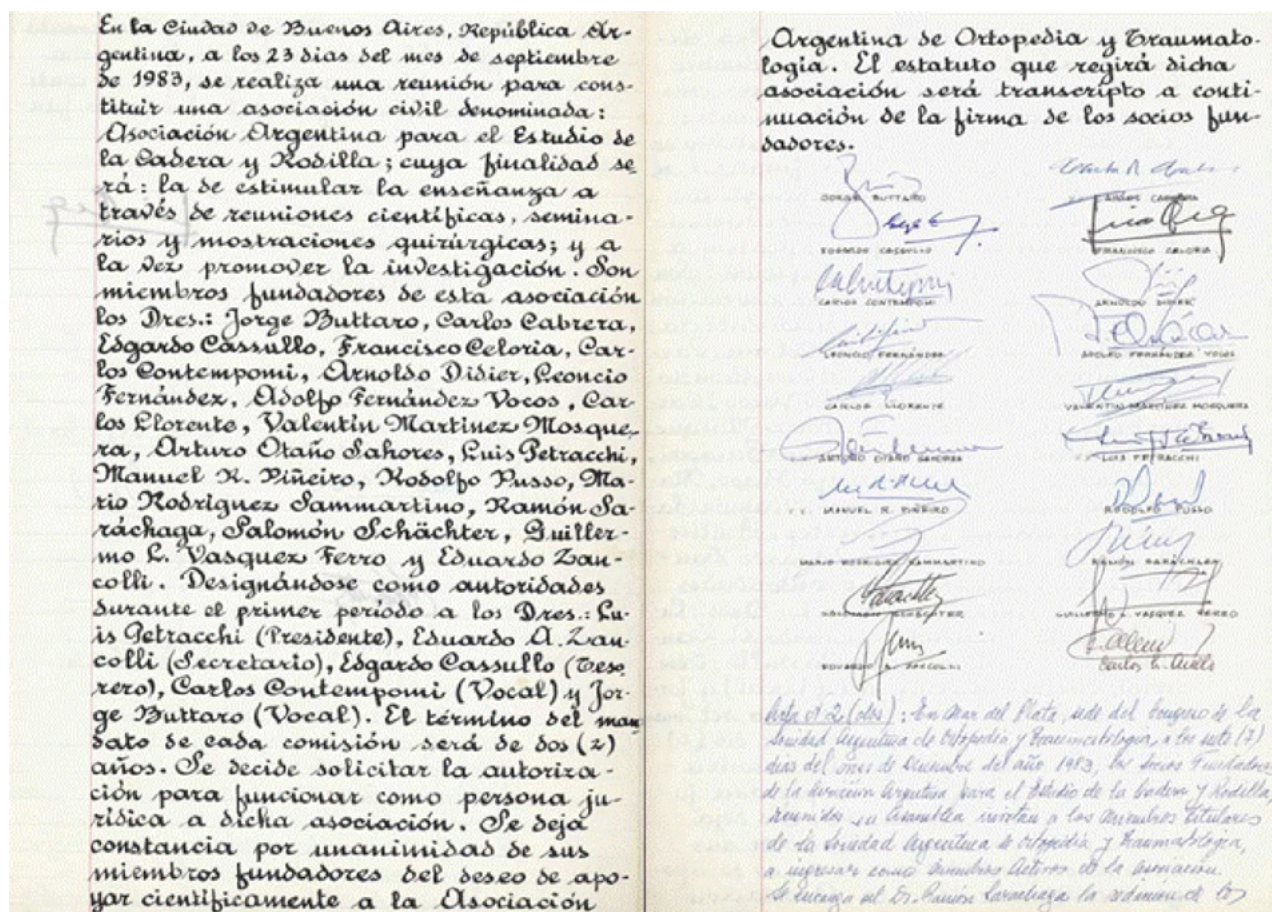 En la Ciudad de Buenos Aires, República Ar-
gentina, a los 23 dias del mes de septiembre
de 1983, se realiza una reunión para cons-
tituir una asociación civil denominada:
Asociación Argentina para el Estudio de
la Cadera y Rodilla; cuya finalidad se-
rá: la de estimular la enseñanza a
través de reuniones científicas, semina-
rios y mostraciones quirúrgicas; y a
la vez promover la investigación. Son
miembros fundadores de esta asociación
los Dres.: Jorge Buttaro, Carlos Cabrera,
Edgardo Cassullo, Francisco Celoria, Car-
los Contempomi, Arnoldo Didier, Leoncio
Fernández, Adolfo Fernández Vocos, Car-
los Llorente, Valentín Martinez Mosque-
ra, Arturo Otaño Sahores, Luis Petracchi,
Manuel R. Piñeiro, Rodolfo Pusso, Ma-
rio Rodriguez Sammartino, Ramón Sa-
ráchaga, Salomón Schächter, Guiller-
mo L. Vasquez Ferro y Eduardo Zan-
colli. Designándose como autoridades
durante el primer período a los Dres.: Lu-
is Petracchi (Presidente), Eduardo A. Zan-
colli (Secretario), Edgardo Cassullo (Teso-
rero), Carlos Contempomi (Vocal) y Jor-
ge Buttaro (Vocal). El término del man-
dato de cada comisión será de dos (2)
años. Se decide solicitar la autoriza-
ción para funcionar como persona ju-
rídica a dicha asociación. Se deja
constancia por unanimidad de sus
miembros fundadores del deseo de apo-
yar científicamente a la Asociación
Argentina de Ortopedia y Traumato-
logía. El estatuto que regirá dicha
asociación será transcripto a conti-
nuación de la firma de los socios fun-
dadores.
JORGE BUTTARO
CARLOS CABRERA
EDGARDO CASSULLO
FRANCISCO CELORIA
CARLOS CONTEMPOMI
ARNOLDO DIDIER
LEONCIO FERNÁNDEZ
ADOLFO FERNÁNDEZ VOCOS
CARLOS LLORENTE
VALENTIN MARTINEZ MOSQUERA
ARTURO OTAÑO SAHORES
LUIS PETRACCHI
MANUEL R. PIÑEIRO
RODOLFO PUSSO
MARIO RODRIGUEZ SAMMARTINO
RAMÓN SARÁCHAGA
SCHÄCHTER
GUILLERMO L. VASQUEZ FERRO
EDUARDO A. ZANCOLLI
Carlos
Acta nº 2 (dos): En Mar del Plata, sede del Congreso de la
Sociedad Argentina de Ortopedia y Traumatología, a los siete (7)
dias del mes de Diciembre del año 1983, los Socios Fundadores
de la Asociación Argentina para el Estudio de la Cadera y Rodilla,
reunidos en Asamblea invitan a los Miembros titulares
de la Sociedad Argentina de Ortopedia y Traumatología,
a ingresar como Miembros Activos de la Asociación.
Se encarga al Dr. Ramón Sarachaga la redacción de los